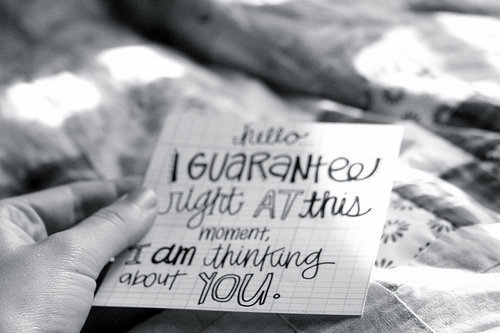 hello.
I GUARANteeD
right AT this
moment,
I am thinking
about YOU.